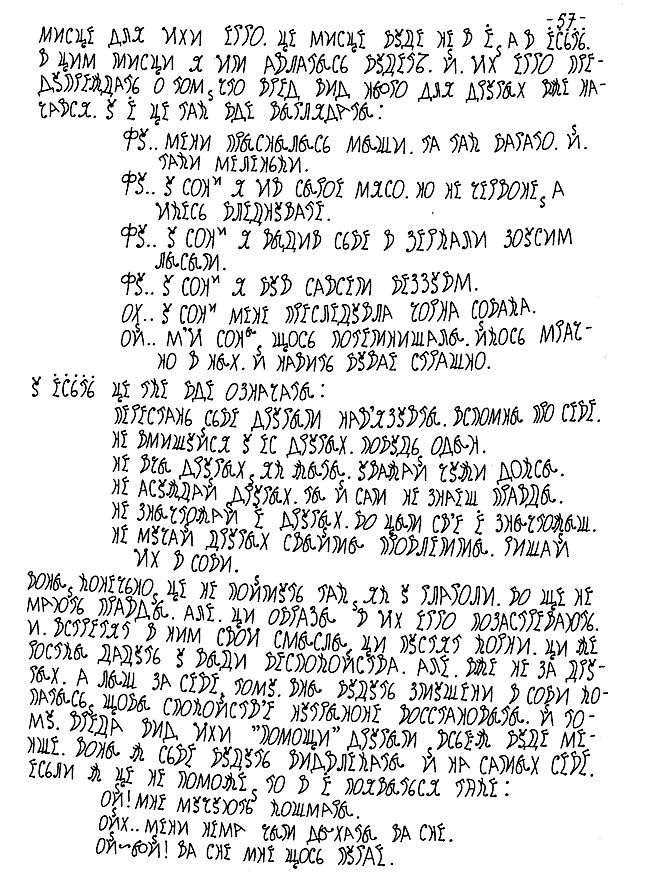 -57-
МИСЦЕ ДЛЯ ИХИ ЕГГО. ЦЕ МИСЦЕ БУДЕ НЕ В Ё, А В ЁСЬТЬ.
В ЦИМ МИСЦИ Я ИМ ЯВЛЯТЫСЬ БУДЕТЬ. Й. ИХ ЕГГО ПРЕ-
ДУПРЕЖДАТЬ О ТОМ, ЧТО ВРЕД ВИД НЬОГО ДЛЯ ДРУГЫХ ВЖЕ НА-
ЧАВСЯ. У Ё ЦЕ ТАК БДЕ ВЫГЛЯДАТЫ:
ФУ.. МЕНИ ПРЫСНЫЛЫСЬ МЫШИ. ТА ТАК БАГАТО. Й.
ТАКИ МЕЛЕНЬКИ.
ФУ.. У СОНИ Я ИВ СЫРОЕ МЯСО. НО НЕ ЧЕРВОНЕ, А
ИКЕСЬ БЛЕДНУВАТЕ.
ФУ.. У СОНИ Я ВЫДИВ СЬБЕ В ЗЕРКАЛИ ЗОУСИМ
ЛЫСЫМ.
ФУ.. У СОНИ Я БУВ САВСЕМ БЕЗЗУБМ.
ОХ.. У СОНИ МЕНЕ ПРЕСЛЕДУВЛА ЧОРНА СОБАКА.
ОЙ.. М'И СОНЫ, ЩОСЬ ПОТЕМНИШАЛЫ. ЙКОСЬ МРАЧ-
НО В НЫХ. Й НАВИТЬ БУВАЕ СТРАШНО.
У ЁСЬТЬ ЦЕ ТКЕ БДЕ ОЗНАЧАТЫ:
ПЕРЕСТАНЬ СЬБЕ ДРУГЫМ НАВ'ЯЗУВТЫ. ВСПОМНЫ ПРО СЕБЕ.
НЕ ВМИШУЙСЯ У ЕС ДРУГЫХ. ПОБУДЬ ОДЫН.
НЕ ВЧЫ ДРУГЫХ, ЯК ЖЫТЫ. УВАЖАЙ ЧУЖИ ДОКСЫ.
НЕ АСУЖДАЙ ДРУГЫХ. ТЫ Й САМ НЕ ЗНАЕШ ПРАВДЫ.
НЕ ЗНЫЧТОЖАЙ Ё ДРУГЫХ. БО ЦЫМ СВ'Е Ё ЗНЫЧТОЖЫШ.
НЕ МУЧАЙ ДРУГЫХ СВАЙИМЫ ПРОБЛЕМИМЫ. РИШАЙ
ИХ В СОБИ.
ВОНЫ, КОНЕЧЬНО, ЦЕ НЕ ПОЙМУТЬ ТАК, ЯК У ГЛАГОЛИ. БО ЩЕ НЕ
МАЮТЬ ПРАВДЫ. АЛЕ. ЦИ ОБРАЗЫ В ИХ ЕГГО ПОЗАСТРЕВАЮТЬ.
Й. ВСТРЕТЯТ В НИМ СВОИ СМЫСЛЫ, ЦИ ПУСТЯТ КОРНИ. ЦИ ЖЕ
РОСТКЫ ДАДУТЬ У ВЫДИ БЕСПОКОЙСТВА. АЛЕ. ВЖЕ НЕ ЗА ДРУ-
ГЫХ. А ЛЫШ ЗА СЕБЕ, ТОМУ. ВНЫ БУДУТЬ ЗМУШЕНИ В СОБИ КО-
ПАТЫСЬ, ЩОБЫ СПОКОЙСТВ'Е НУТРАНОНЕ ВОССТАНОВЫТЫ. Й ТО-
МУ. ВРЕДА ВИД ИХИ "ПОМОЩИ" ДРУГЫМ, ВСЬЕЖ БУДЕ МЕ-
НШЕ. ВОНЫ Ж СЬБЕ БУДУТЬ ВИДВЛЕКАТЫ Й НА САМЫХ СЕБЕ.
ЕСЬЛИ Ж ЦЕ НЕ ПОМОЖЕ, ТО В Ё ПОЯВЫТЬСЯ ТАКЕ:
ОЙ! МНЕ МУЧУЮТЬ КОШМАРЫ.
ОЙХ.. МЕНИ НЕМА ЧЫМ ДЫХАТЫ ВА СНЕ.
ОЙ-ВОЙ! ВА СНЕ МНЕ ЩОСЬ ПУГАЕ.